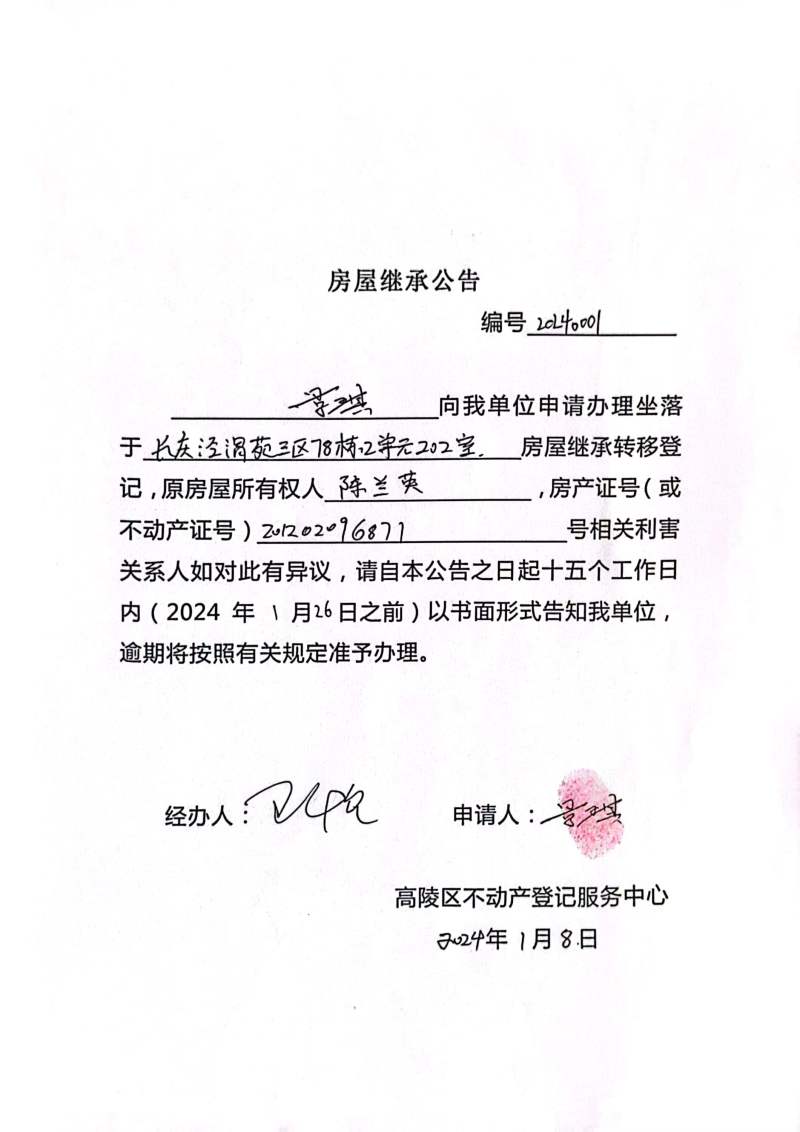 房屋继承公告
编号 20240001
景琪 向我单位申请办理坐落
于 长庆泾渭苑三区78栋12单元202室. 房屋继承转移登
记，原房屋所有权人 陈兰英 ，房产证号（或
不动产证号）201202096871 号相关利害
关系人如对此有异议，请自本公告之日起十五个工作日
内（2024 年 1 月26日之前）以书面形式告知我单位，
逾期将按照有关规定准予办理。
经办人： 申请人：景琪
高陵区不动产登记服务中心
2024年 1月 8日